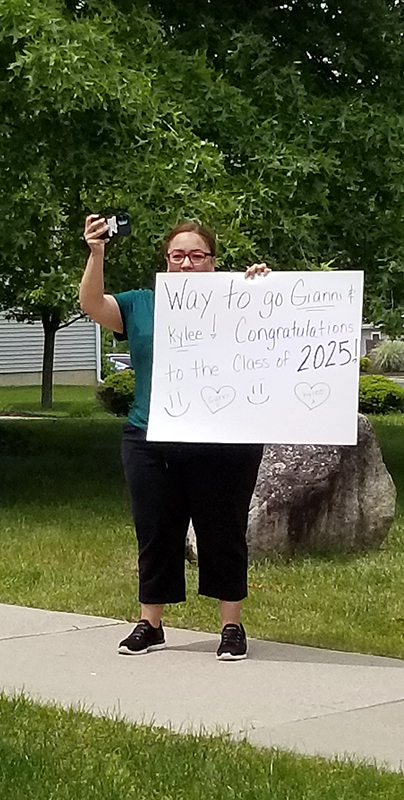 Way to go Gianni &
Kylee! Congratulations
to the Class of 2025!